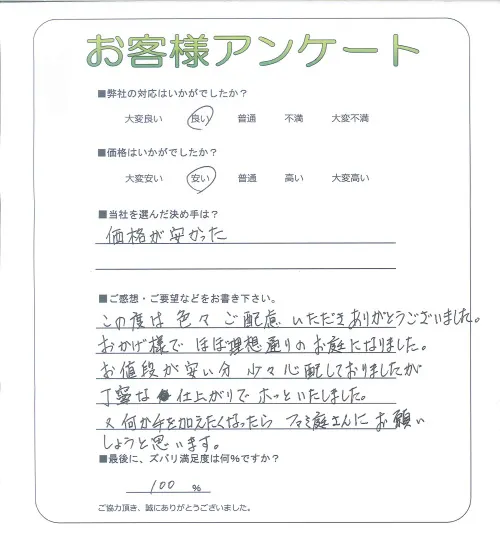 お客様アンケート
■弊社の対応はいかがでしたか？
大変良い 良い 普通 不満 大変不満
■価格はいかがでしたか？
大変安い 安い 普通 高い 大変高い
■当社を選んだ決め手は？
価格が安かった
■ご感想・ご要望などをお書き下さい。
この度は色々ご配慮いただきありがとうございました。
おかげ様でほぼ理想通りのお庭になりました。
お値段が安い分少々心配しておりましたが
丁寧な仕上がりでホッといたしました。
又何か手を加えたくなったらファミ庭さんにお願い
しようと思います。
■最後に、ズバリ満足度は何%ですか？
100 %
ご協力頂き、誠にありがとうございました。